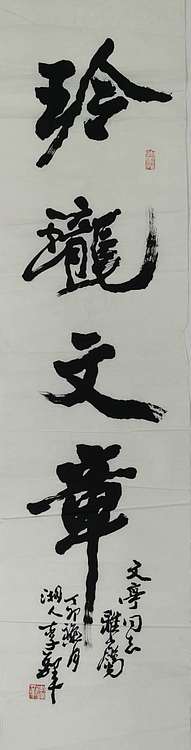 玲瓏文章
文亭同志
雅屬
丁卯
月
湖人李